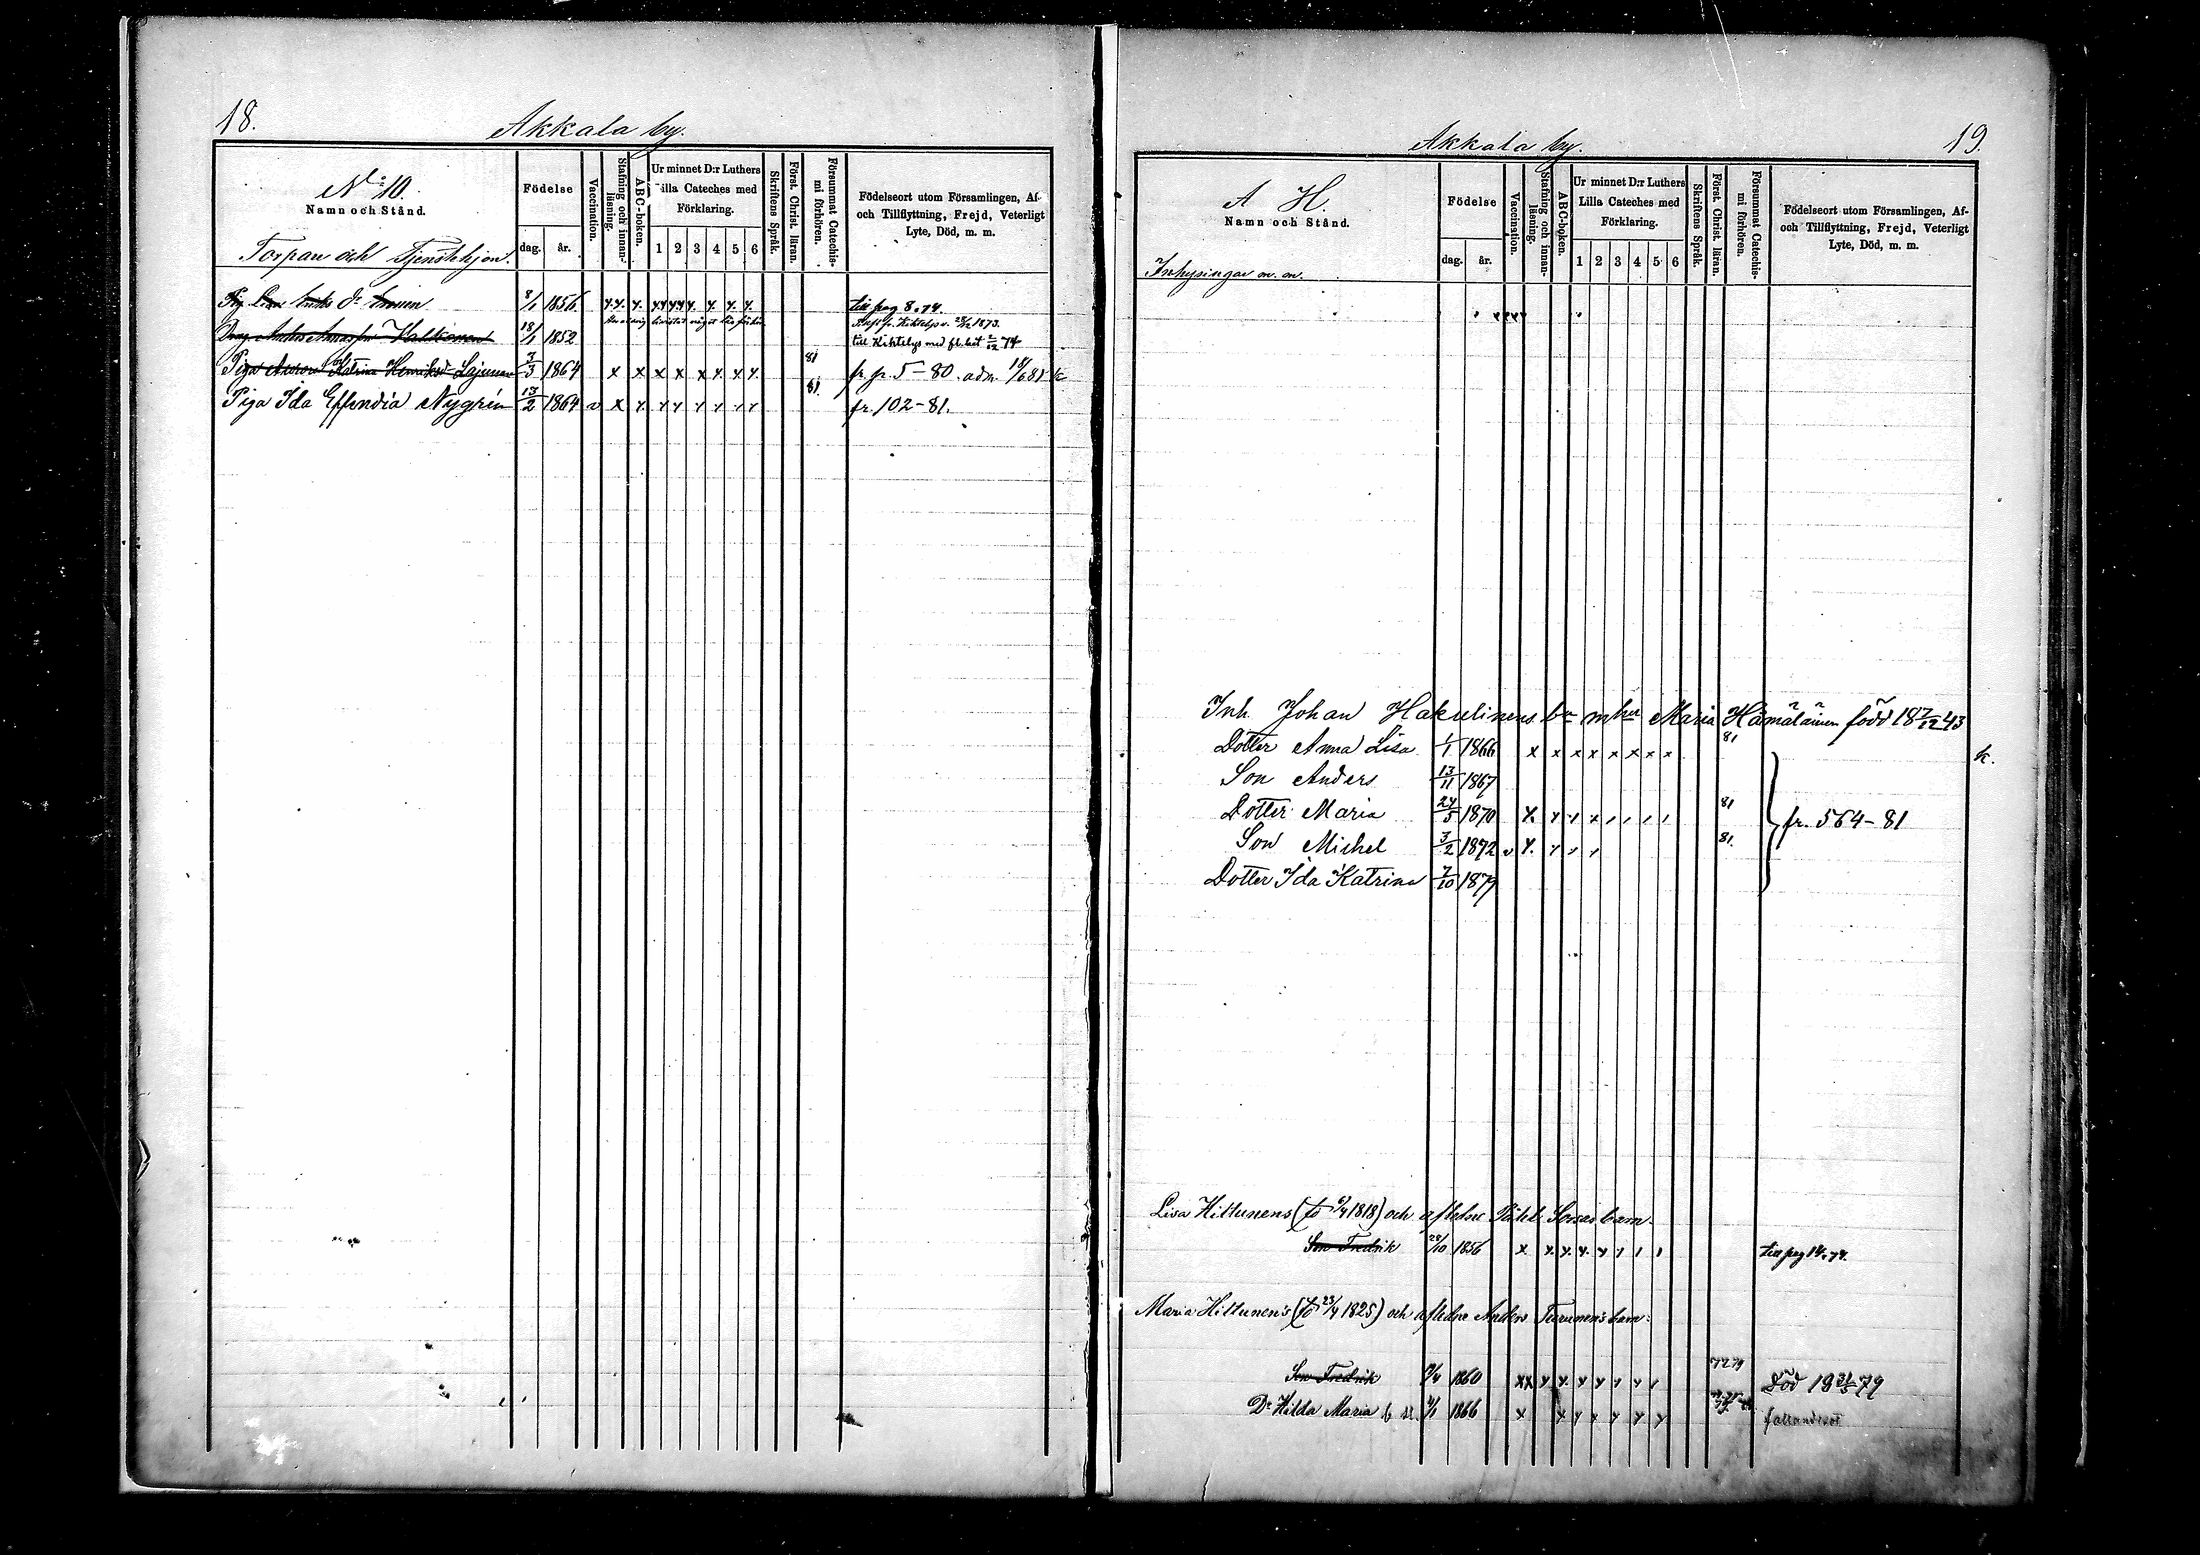 18.
Akkala by.
No 10.
Namn och Stånd.
Torpare och Tjenstehjon.
Födelse
dag. år.
Vaccination.
Stafning och innanläsning.
ABC-boken.
Ur minnet D:r Luthers
Lilla Cateches med
Förklaring.
1 2 3 4 5 6
Skriftens Språk.
Först. Christ. läran.
Försummat Catechismi förhören.
Födelseort utom Församlingen, Af-
och Tillflyttning, Frejd, Veterligt
Lyte, Död, m. m.
8/1 1856. till pag 8.74.
Anders Halkonen 18/1 1852 28/12 1873.
till Kihtelys med fl. bet 74
Piga Katrina Henriksdr Lajunen 7/3 1864 x x x x x x x x 81 fr. pr. 5-80. adm. 81 k
Piga Ida Effendia Nygrén 13/2 1864 v x x 81. fr. 102-81.
Akkala by.
19.
A H.
Namn och Stånd.
Inhysingar m. m.
Födelse
dag. år.
Vaccination.
Stafning och innanläsning.
ABC-boken.
Ur minnet D:r Luthers
Lilla Cateches med
Förklaring.
1 2 3 4 5 6
Skriftens Språk.
Först. Christ. läran.
Försummat Catechismi förhören.
Födelseort utom Församlingen, Af-
och Tillflyttning, Frejd, Veterligt
Lyte, Död, m. m.
Inh. Johan Hakulinens bn m hu Maria Hämäläinen född 18 7/12 43
Dotter Anna Lisa 1/1 1866 x x x x x x x x 81 k.
Son Anders 13/11 1867
Dotter Maria 24/5 1870 81 fr. 564-81
Son Michel 3/2 1872 v 81.
Dotter Ida Katrina 7/10 1879
Lisa Hiltunens (fö 1818) och aflidne Påhl barn.
Son Fredrik 28/10 1856 till pag 14.74.
Maria Hiltunens (fö 23/4 1825) och aflidne Anders Turunens barn:
Son Fredrik 1860 död 18 79
Dr Hilda Maria 1866 fallandesot